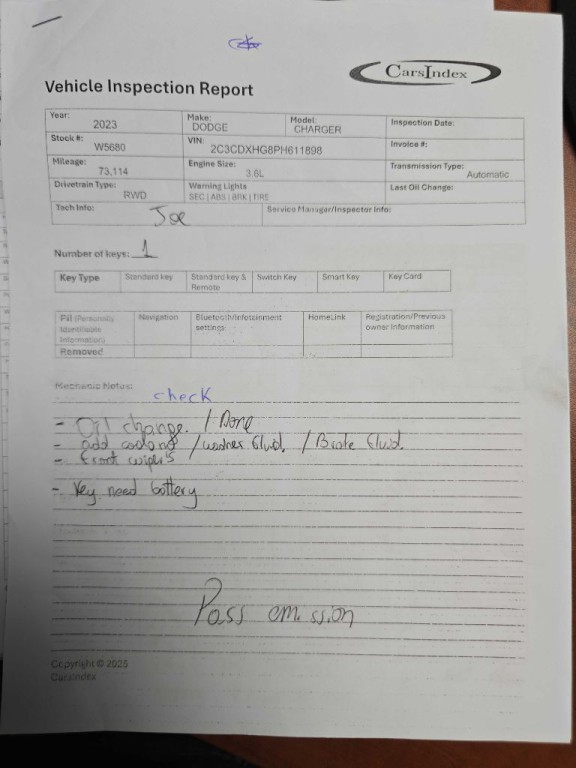 CarsIndex
Vehicle Inspection Report
Year: 2023 Make: DODGE Model: CHARGER Inspection Date:
Stock #: W5680 VIN: 2C3CDXHG8PH611898 Invoice #:
Mileage: 73,114 Engine Size: 3.6L Transmission Type: Automatic
Drivetrain Type: RWD Warning Lights SEC | ABS | BRK | TIRE Last Oil Change:
Tech Info: Joe Service Manager/Inspector Info:
Number of keys: 1
Key Type Standard key Standard key & Remote Switch Key Smart Key Key Card
PII (Personally Identifiable Information) Navigation Bluetooth/Infotainment settings HomeLink Registration/Previous owner Information
Removed
Mechanic Notes:
check
- Oil change. / Done
- add /washer fluid. / Brake fluid.
- front wipers
- Key need battery
Pass emission
Copyright © 2025
CarsIndex